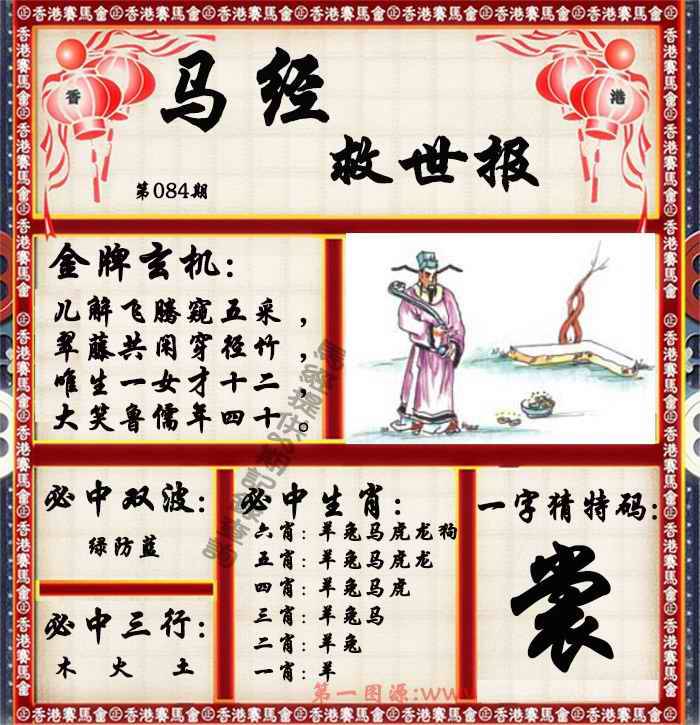 香港賽馬會
香 港
马经
救世报
第084期
金牌玄机：
儿解飞腾窥五采，
翠藤共闲穿径竹，
唯生一女才十二，
大笑鲁儒年四十。
必中双波：
绿防蓝
必中三行：
木 火 土
必中生肖：
六肖：羊兔马虎龙狗
五肖：羊兔马虎龙
四肖：羊兔马虎
三肖：羊兔马
二肖：羊兔
一肖：羊
一字猜特码：
裳
第一图源：www